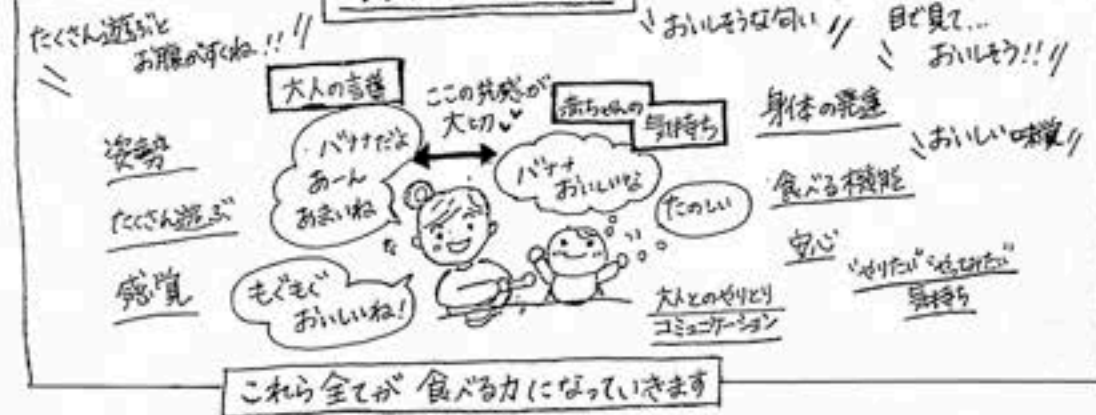 たくさん遊ぶと
お腹がすくね!!
おいしそうな匂い
目で見て...
おいしそう!!
大人の言葉
ここの共感が
大切
赤ちゃんの
気持ち
身体の発達
おいしい味覚
姿勢
バナナだよ
あーん
あまいね
バナナ
おいしいな
たのしい
食べる機能
たくさん遊ぶ
安心
"やりたい""やってみたい"
気持ち
感覚
もぐもぐ
おいしいね!
大人とのやりとり
コミュニケーション
これら全てが 食べる力になっていきます